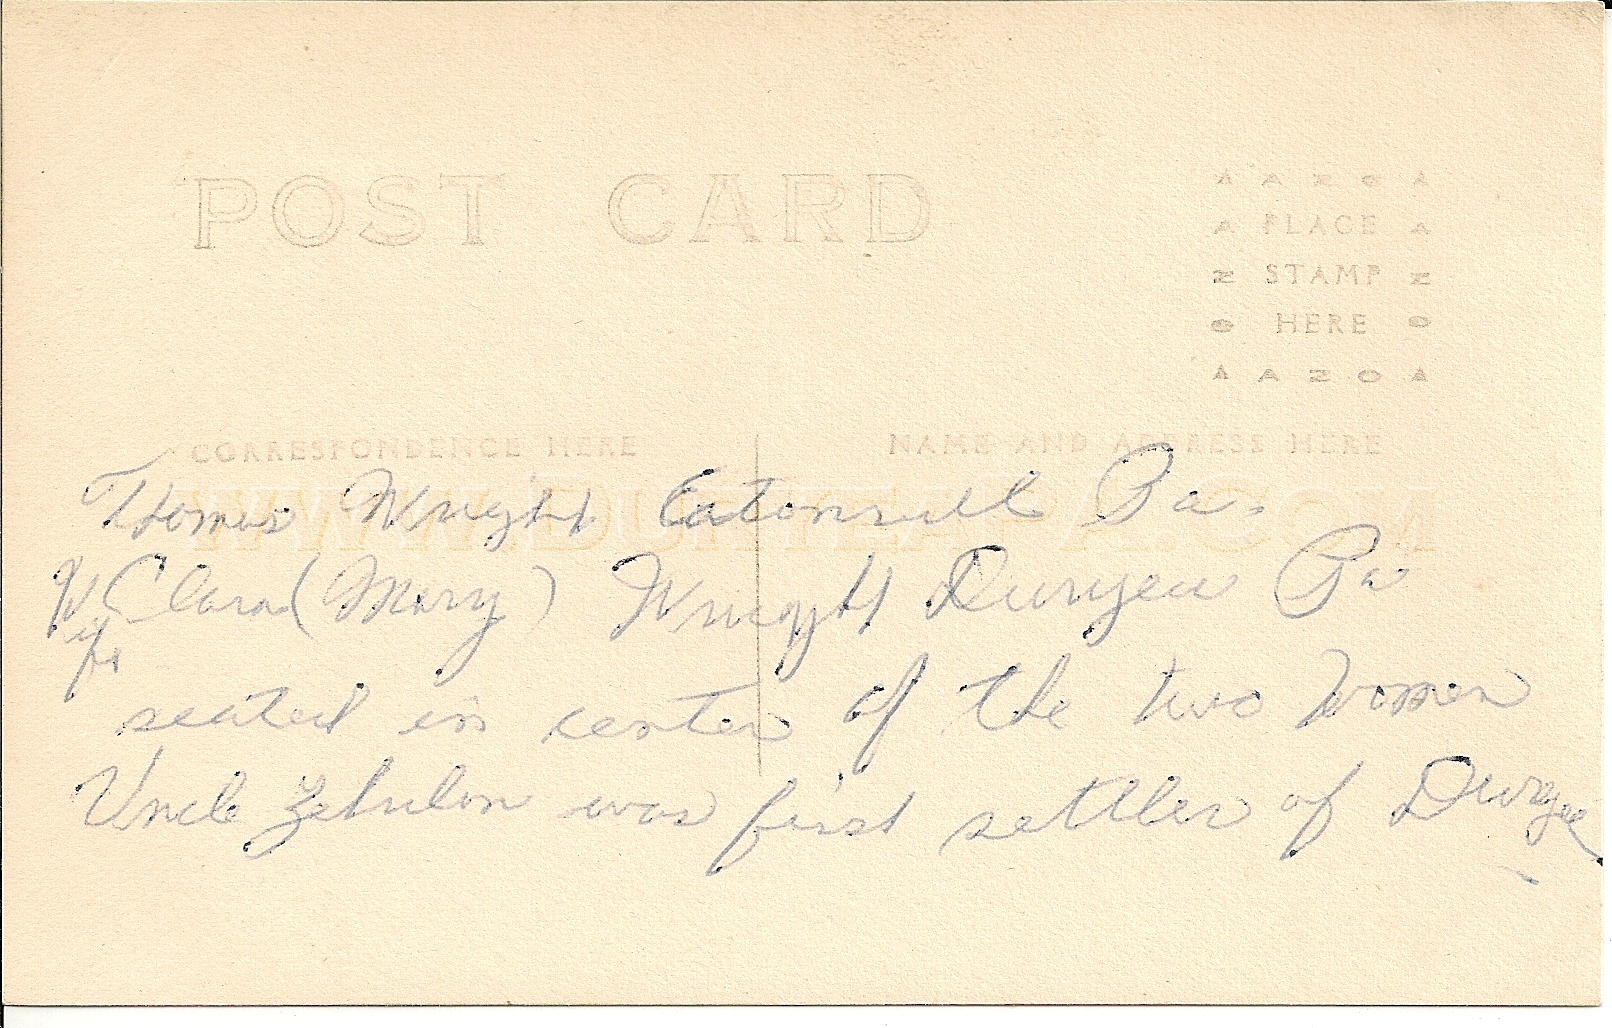 POST CARD
AAZOA
A PLACE A
Z STAMP Z
O HERE O
AAZOA
CORRESPONDENCE HERE
NAME AND ADDRESS HERE
WWW.DURYEAPA.COM
Thomas Knight Eatonvill Pa.
Wife Clara (Mary) Knight Duryea Pa
seated in center of the two women
Uncle Zebulon was first settler of Duryea